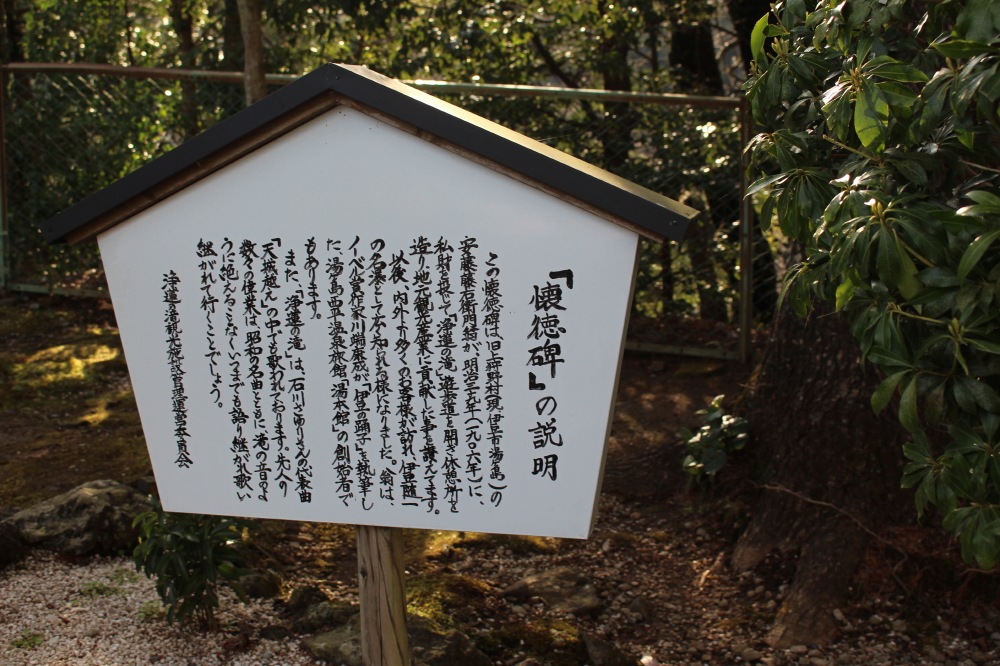 「懐徳碑」の説明
この懐徳碑は、旧上狩野村(現伊豆市湯ヶ島)の
安藤藤右衛門翁が、明治三九年(一九〇六年)に、
私財を投じて「浄蓮の滝」遊歩道を開き、休憩所を
造り、地元観光産業に貢献した事を讃えてます。
以後、内外より多くのお客様が訪れ、伊豆随一
の名瀑として広く知られる様になりました。翁は、
ノーベル賞作家川端康成が、「伊豆の踊子」を執筆し
た、湯ヶ島温泉旅館「湯本館」の創始者で
もあります。
また、「浄蓮の滝」は、石川さゆりさんの代表曲
「天城越え」の中でも歌われております。先人の
数々の偉業は、昭和の名曲とともに滝の音のよ
うに絶えることなくいつまでも語り継がれ歌い
継がれて行くことでしょう。
浄蓮の滝観光施設管理運営委員会